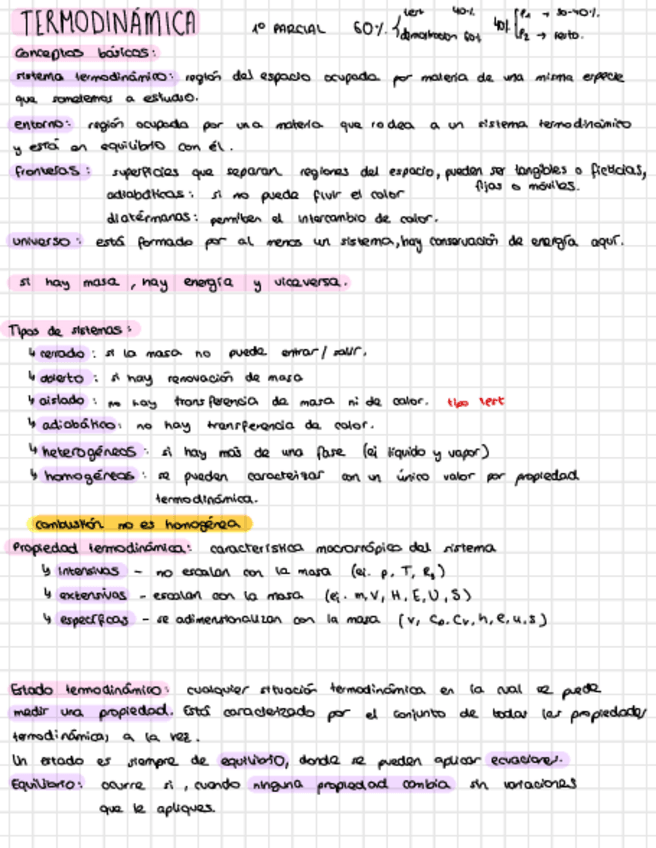 TERMODINÁMICA 1º PARCIAL 60% test 40% 40% P1 → 30-40%.
demostración 60% P2 → resto.
Conceptos básicos:
sistema termodinámico: región del espacio ocupada por materia de una misma especie
que sometemos a estudio.
entorno: región ocupada por una materia que rodea a un sistema termodinámico
y está en equilibrio con él.
fronteras: superficies que separan regiones del espacio, pueden ser tangibles o ficticias,
fijas o móviles.
adiabáticas: si no puede fluir el calor
diatérmanas: permiten el intercambio de calor.
universo: está formado por al menos un sistema, hay conservación de energía aquí.
si hay masa, hay energía y viceversa.
Tipos de sistemas:
↳ cerrado: si la masa no puede entrar/salir.
↳ abierto: si hay renovación de masa
↳ aislado: no hay transferencia de masa ni de calor. tipo test
↳ adiabático: no hay transferencia de calor.
↳ heterogéneos: si hay más de una fase (ej líquido y vapor)
↳ homogéneos: se pueden caracterizar con un único valor por propiedad
termodinámica.
combustión no es homogénea
Propiedad termodinámica: característica macroscópica del sistema
↳ intensivas - no escalan con la masa (ej. p, T,
↳ extensivas - escalan con la masa (ej. m, V, H, E, U, S)
↳ específicas - se adimensionalizan con la masa (v, Cp, Cv, h, e, u, s)
Estado termodinámico: cualquier situación termodinámica en la cual se puede
medir una propiedad. Está caracterizado por el conjunto de todas las propiedades
termodinámicas a la vez.
Un estado es siempre de equilibrio, donde se pueden aplicar ecuaciones.
Equilibrio: ocurre si, cuando ninguna propiedad cambia sin variaciones
que le apliques.